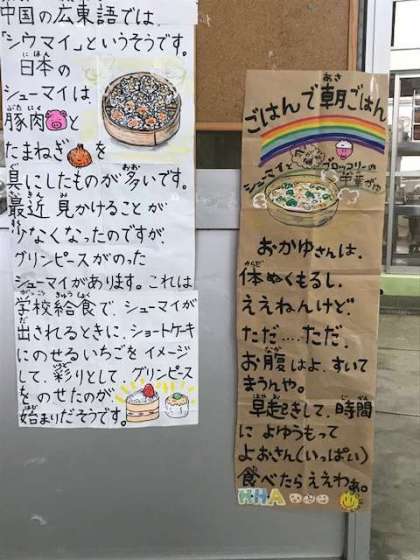 中国の広東語では、
「シウマイ」というそうです。
日本の
シューマイは、
豚肉と
たまねぎを
具にしたものが多いです。
最近 見かけることが
少なくなったのですが、
グリンピースがのった
シューマイがあります。これは
学校給食で、シューマイが
出されるときに、ショートケーキ
にのせるいちごをイメージ
して、彩りとして、グリンピース
をのせたのが、
始まりだそうです。
ごはんで朝ごはん
シューマイと
ブロッコリーの
中華がゆ
おかゆさんは、
体ぬくもるし、
ええねんけど、
ただ‥‥ただ、
お腹はよ、すいて
まうんや。
早起きして、時間
によゆうもって
よおさん(いっぱい)
食べたらええわぁ。
HHA